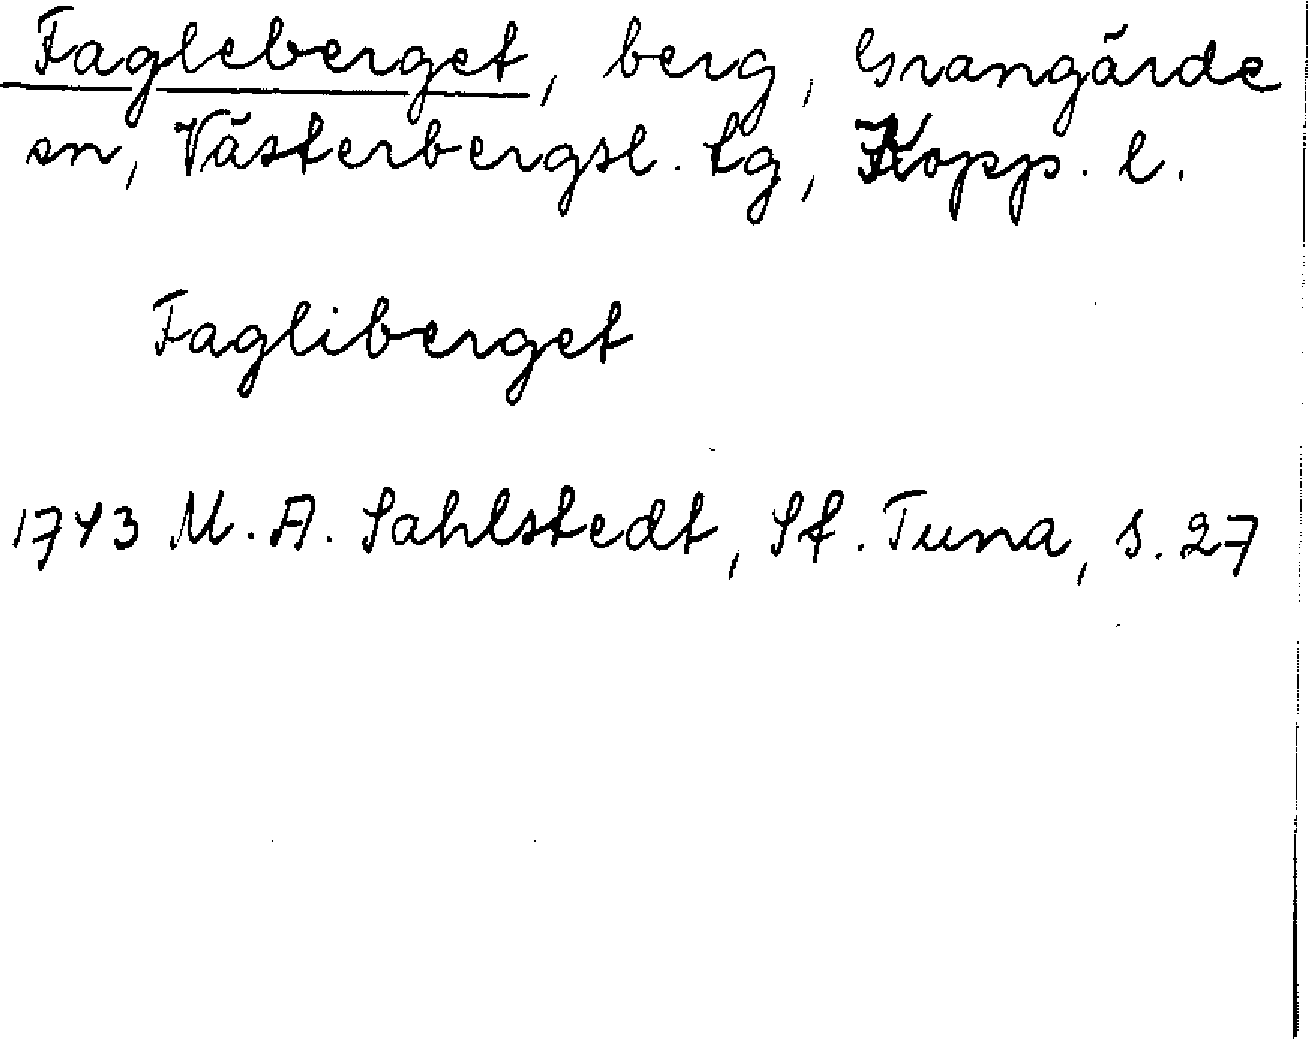 Fagleberget, berg, Grangärde
sn, Västerbergsl. tg, Kopp. l.
Fagliberget
1743 M. A. Sahlstedt, St. Tuna, s. 27